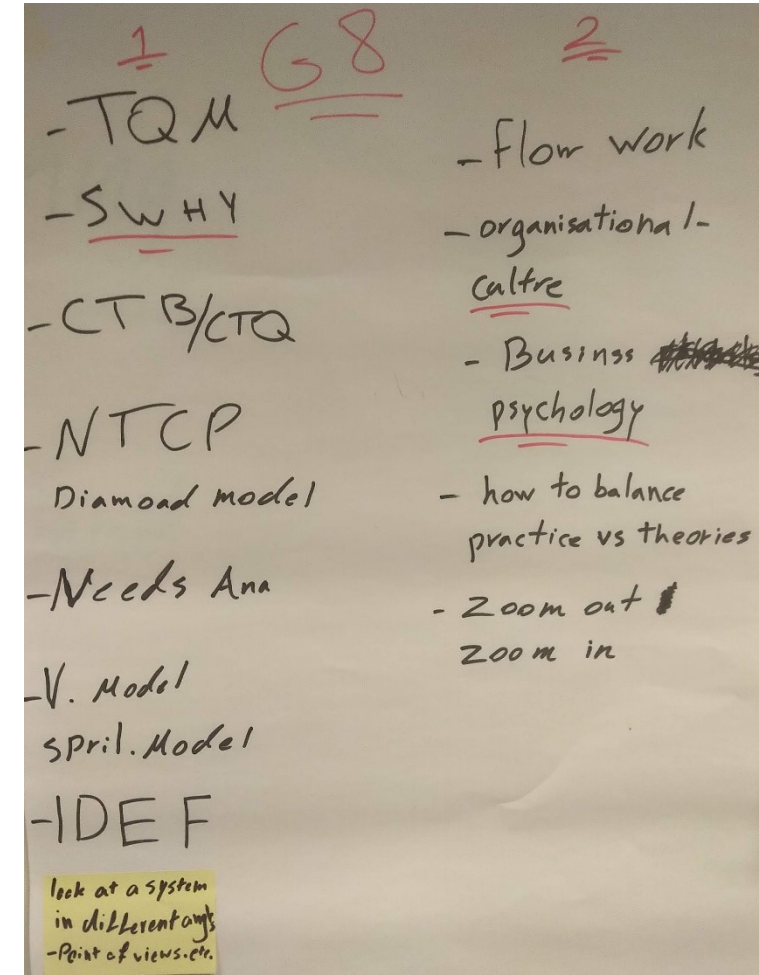 G8
1
-TQM
-5WHY
-CTB/CTQ
-NTCP
Diamoad model
-Needs Ana
-V. Model
spril. Model
-IDEF
look at a system
in different angs
-Point of views.etc.
2
- flow work
- organisational-
Caltre
- Businss
psychology
- how to balance
practice vs theories
- Zoom out
zoom in